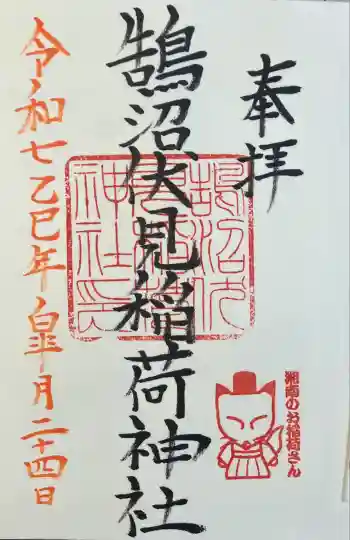 奉拝
鵠沼伏見稲荷神社
令和七乙巳年皐月二十四日
鵠沼伏
神社
湘南のお稲荷さん